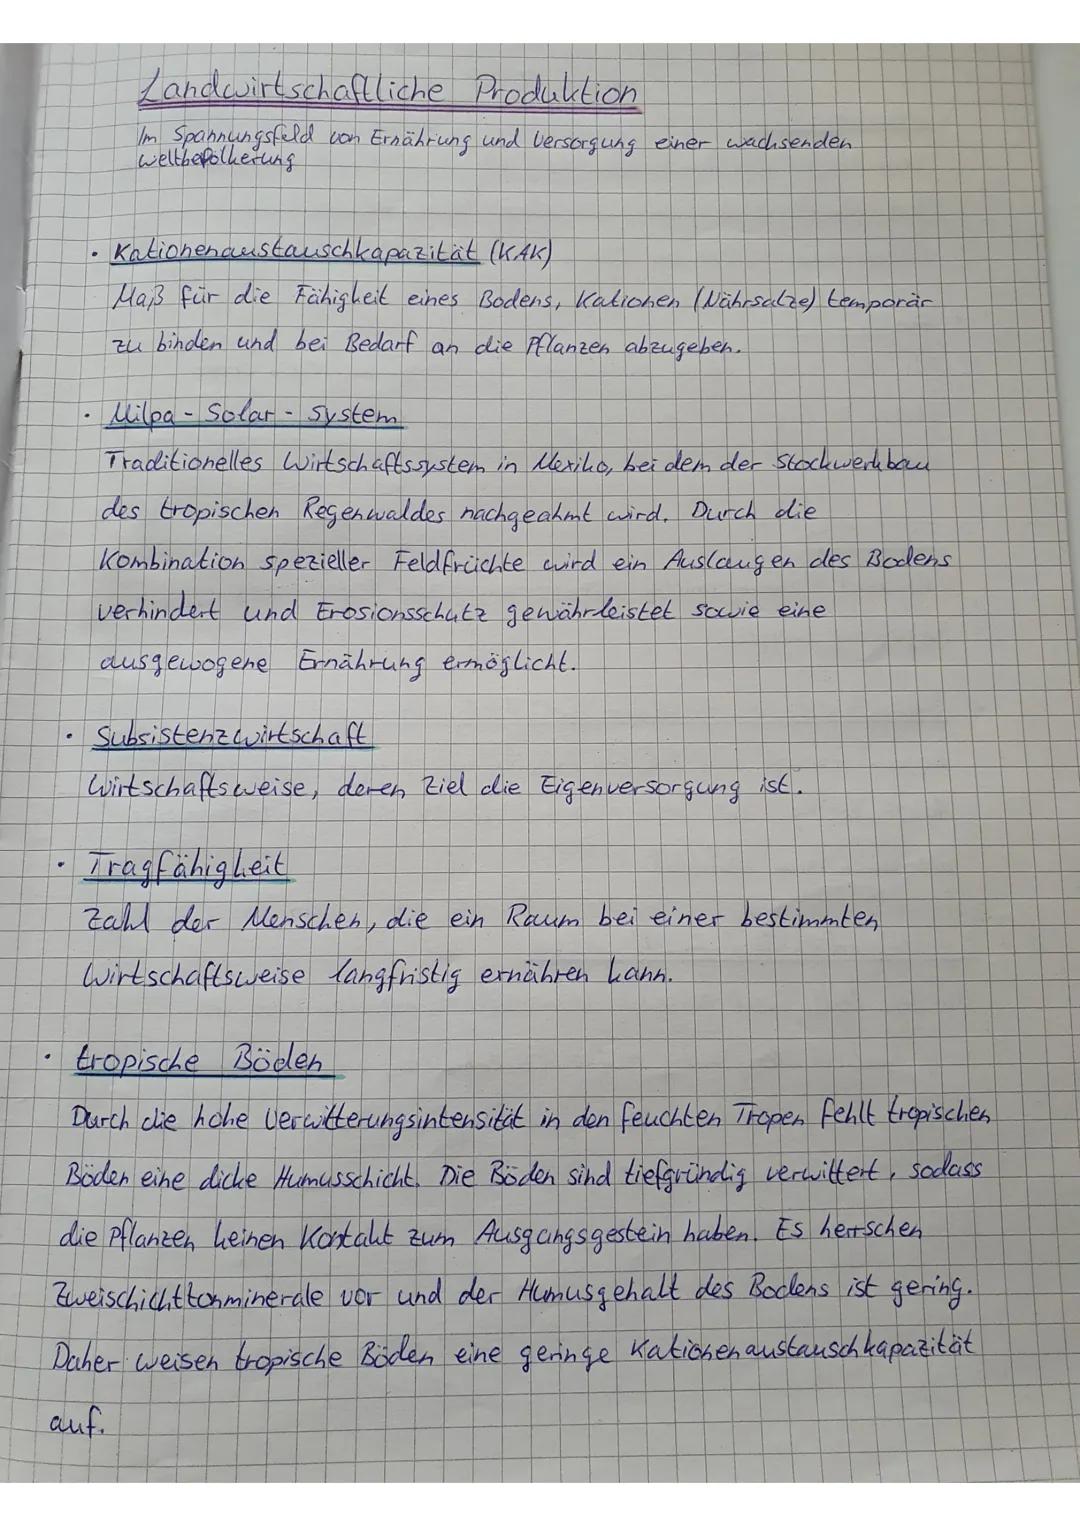 Landwirtschaftliche Produktion
Im Spannungsfeld von Ernährung und Versorgung einer wachsenden
Weltbevölkerung
• Kationenaustauschkapazität (KAK)
Maß für die Fähigkeit eines Bodens, Kationen (Nährsalze) temporär
zu binden und bei Bedarf an die Pflanzen abzugeben.
• Milpa-Solar-System
Traditionelles Wirtschaftssystem in Mexiko, bei dem der Stockwerkbau
des tropischen Regenwaldes nachgeahmt wird. Durch die
Kombination spezieller Feldfrüchte wird ein Auslaugen des Bodens
verhindert und Erosionsschutz gewährleistet sowie eine
ausgewogene Ernährung ermöglicht.
• Subsistenzwirtschaft
Wirtschaftsweise, deren Ziel die Eigenversorgung ist.
• Tragfähigkeit
Zahl der Menschen, die ein Raum bei einer bestimmten
Wirtschaftsweise langfristig ernähren kann.
• tropische Böden
Durch die hohe Verwitterungsintensität in den feuchten Tropen fehlt tropischen
Böden eine dicke Humusschicht. Die Böden sind tiefgründig verwittert, sodass
die Pflanzen keinen Kontakt zum Ausgangsgestein haben. Es herrschen
Zweischichttonminerale vor und der Humusgehalt des Bodens ist gering.
Daher weisen tropische Böden eine geringe Kationenaustauschkapazität
auf.